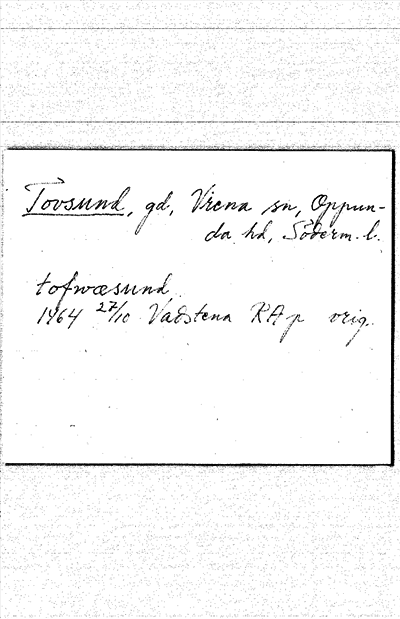 Tovsund, gd, Vrena sn, Oppun-
da hd, Söderm. l.
tofwæsund
1464 27/10 Vadstena RA p orig.